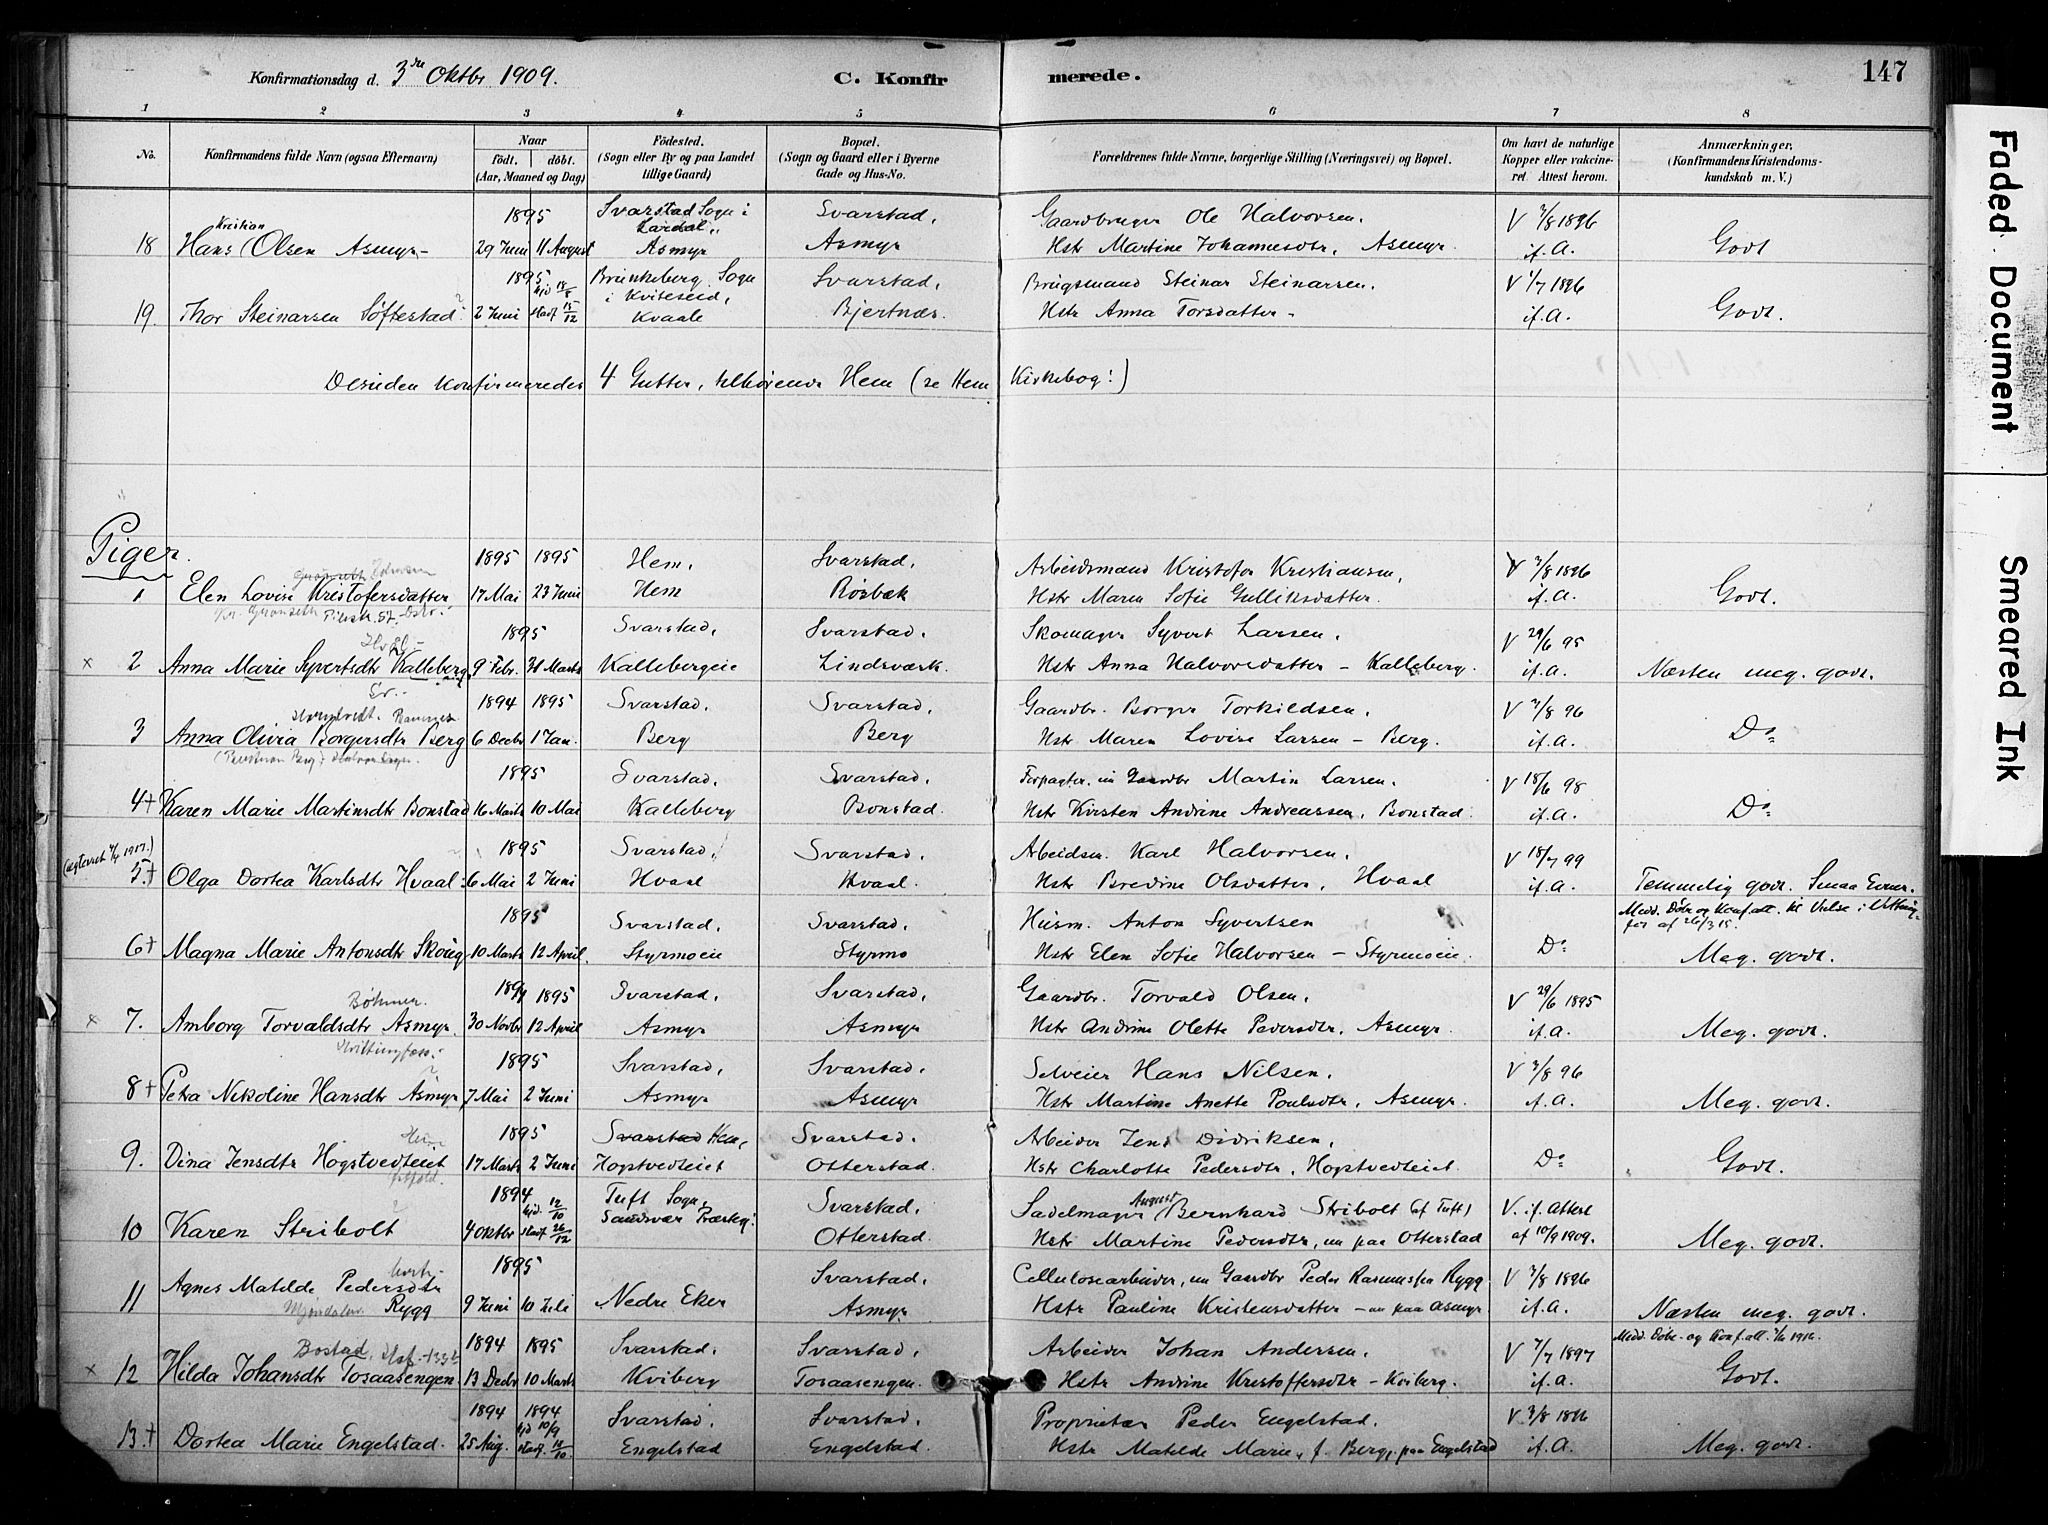 Konfirmationsdag d. 3die Oktbr. 1909.
C. Konfirmerede.
147
1 2 3 4 5 6 7 8
No.
Konfirmandens fulde Navn (ogsaa Efternavn)
Naar
födt. döbt.
(Aar, Maaned og Dag)
Födested.
(Sogn eller By og paa Landet
tillige Gaard)
Bopæl.
(Sogn og Gaard eller i Byerne
Gade og Hus-No.
Forældrenes fulde Navne, borgerlige Stilling (Næringsvei) og Bopæl.
Om havt de naturlige
Kopper eller vakcineret. Attest herom.
Anmærkninger,
(Konfirmandens Kristendomskundskab m. V.)
Kristian 1895 Svarstad Sogn i Svarstad, Gaardbruger Ole Halvorsen. V 3/8 1896
Lardal,
18 Hans Olsen Asmyr 29 Juni 11 August Asmyr Asmyr Hstr Martine Johannesdtr, Asmyr. if. A. Godt
1895 Brunkeberg Sogn Svarstad, Brugsmand Steinar Steinarsen. V 1/7 1896
hjd 18/8 i Kviteseid,
19. Thor Steinarsen Söftestad 2 Juni stadf 15/12 Kvaale Bjertnæs. Hstr Anna Torsdatter if. A. Godt.
Desuden konfirmeredes 4 Gutter, tilhörende Hem (se Hem Kirkebog!)
Piger.
1895 1895 Hem, Svarstad, Arbeidsmand Kristofer Kristiansen, V 3/8 1896
1 Elen Lovise Kristofersdatter 17 Mai 23 Juni Hem Rösbæk Hstr Maren Sofie Gulliksdatter. if. A. Godt.
1895 Svarstad, Svarstad. Skomager Syvert Larsen. V 29/6 95
x 2 Anna Marie Syvertsdtr Kalleberg 9 Febr. 31 Marts Kallebergeie Lindsværk. Hstr Anna Halvorsdatter - Kalleberg. if. A. Næsten meg. godt.
1894 1895 Svarstad. Svarstad. Gaardbr. Borger Torkildsen. V 3/8 96
3 Anna Olivia Borgersdtr Berg 6 Decbr 1 Jan. Berg Berg Hstr Maren Lovise Larsen - Berg. if. A. Do
1895 Svarstad. Svarstad. Forpagter, nu Gaardbr Martin Larsen. V 18/6 98
4+ Karen Marie Martinsdtr Bonstad 16 Marts 10 Mai Kalleberg Bonstad. Hstr Kirsten Andrine Andreassen, Bonstad. if. A. Do
1895 Svarstad, Svarstad. Arbeidsm. Karl Halvorsen. V 18/7 99
5.+ Olga Dortea Karlsdtr Hvaal 6 Mai 2 Juni Hvaal Hvaal. Hstr Bredine Olsdatter, Hvaal if. A. Temmelig godt. Smaa Evner.
1895 Svarstad. Svarstad. Husm. Anton Syvertsen
6+ Magna Marie Antonsdtr Skoug 10 Marts 12 April. Styrmoeie Styrmo Hstr Elen Sofie Halvorsen - Styrmoeie. Do Meg. godt.
Böhmer. 1894 1895 Svarstad, Svarstad. Gaardbr. Torvald Olsen. V 29/6 1895
x 7. Amborg Torvaldsdtr Asmyr. 30 Novbr 12 April Asmyr Asmyr Hstr Andrine Olette Pedersdtr, Asmyr. if. A. Meg. godt.
Hvittingfoss.
1895 Svarstad, Svarstad. Selveier Hans Nilsen. V 3/8 96
8+ Petra Nikoline Hansdtr Asmyr 7 Mai 2 Juni Asmyr Asmyr Hstr Martine Anette Poulsdtr, Asmyr. if. A. Meg. godt.
1895 Svarstad Hem, Svarstad. Arbeider Jens Didriksen.
9. Dina Jensdtr Hogstvedteiet 17 Marts 2 Juni Hogstvedteiet Otterstad. Hstr Charlotte Pedersdtr. Hogstvedteiet. Do Godt.
1894 Tuft Sogn, Svarstad. Sadelmager August Bernhard Stribolt (af Tuft) V. if. Attest
hjd. 12/10 Sandsvær Præstegj.
10 Karen Stribolt 4 Oktbr stadf. 26/12 Otterstad. Hstr Martine Pedersdtr, nu paa Otterstad af 10/9 1909. Meg. godt.
Agnes Matilde Pedersdtr 1895 Svarstad. Cellulosearbeider, nu Gaardbr Peder Rasmussen Rygg V 3/8 1896
11 Mjøndalen Rygg 9 Juni 10 Juli Nedre Eker Asmyr Hstr Pauline Kristensdatter - nu paa Asmyr if. A. Næsten meg. godt.
Bostad, 1894 1895 Svarstad. Svarstad. Arbeider Johan Andersen. V 7/7 1897
x 12 Hilda Johansdtr Tosaasengen 13 Decbr 10 Marts Kviberg Tosaasengen. Hstr Andrine Kristoffersdtr - Kviberg. if. A. Godt.
1894 1894 Svarstad. Svarstad. Proprietær Peder Engelstad. V 3/8 1896
hjd 10/9
13.+ Dortea Marie Engelstad. 25 Aug. stadf. 14/10 Engelstad Engelstad. Hstr Matilde Marie, f. Berg, paa Engelstad if. A. Meg. godt.
Faded Document
Smeared Ink